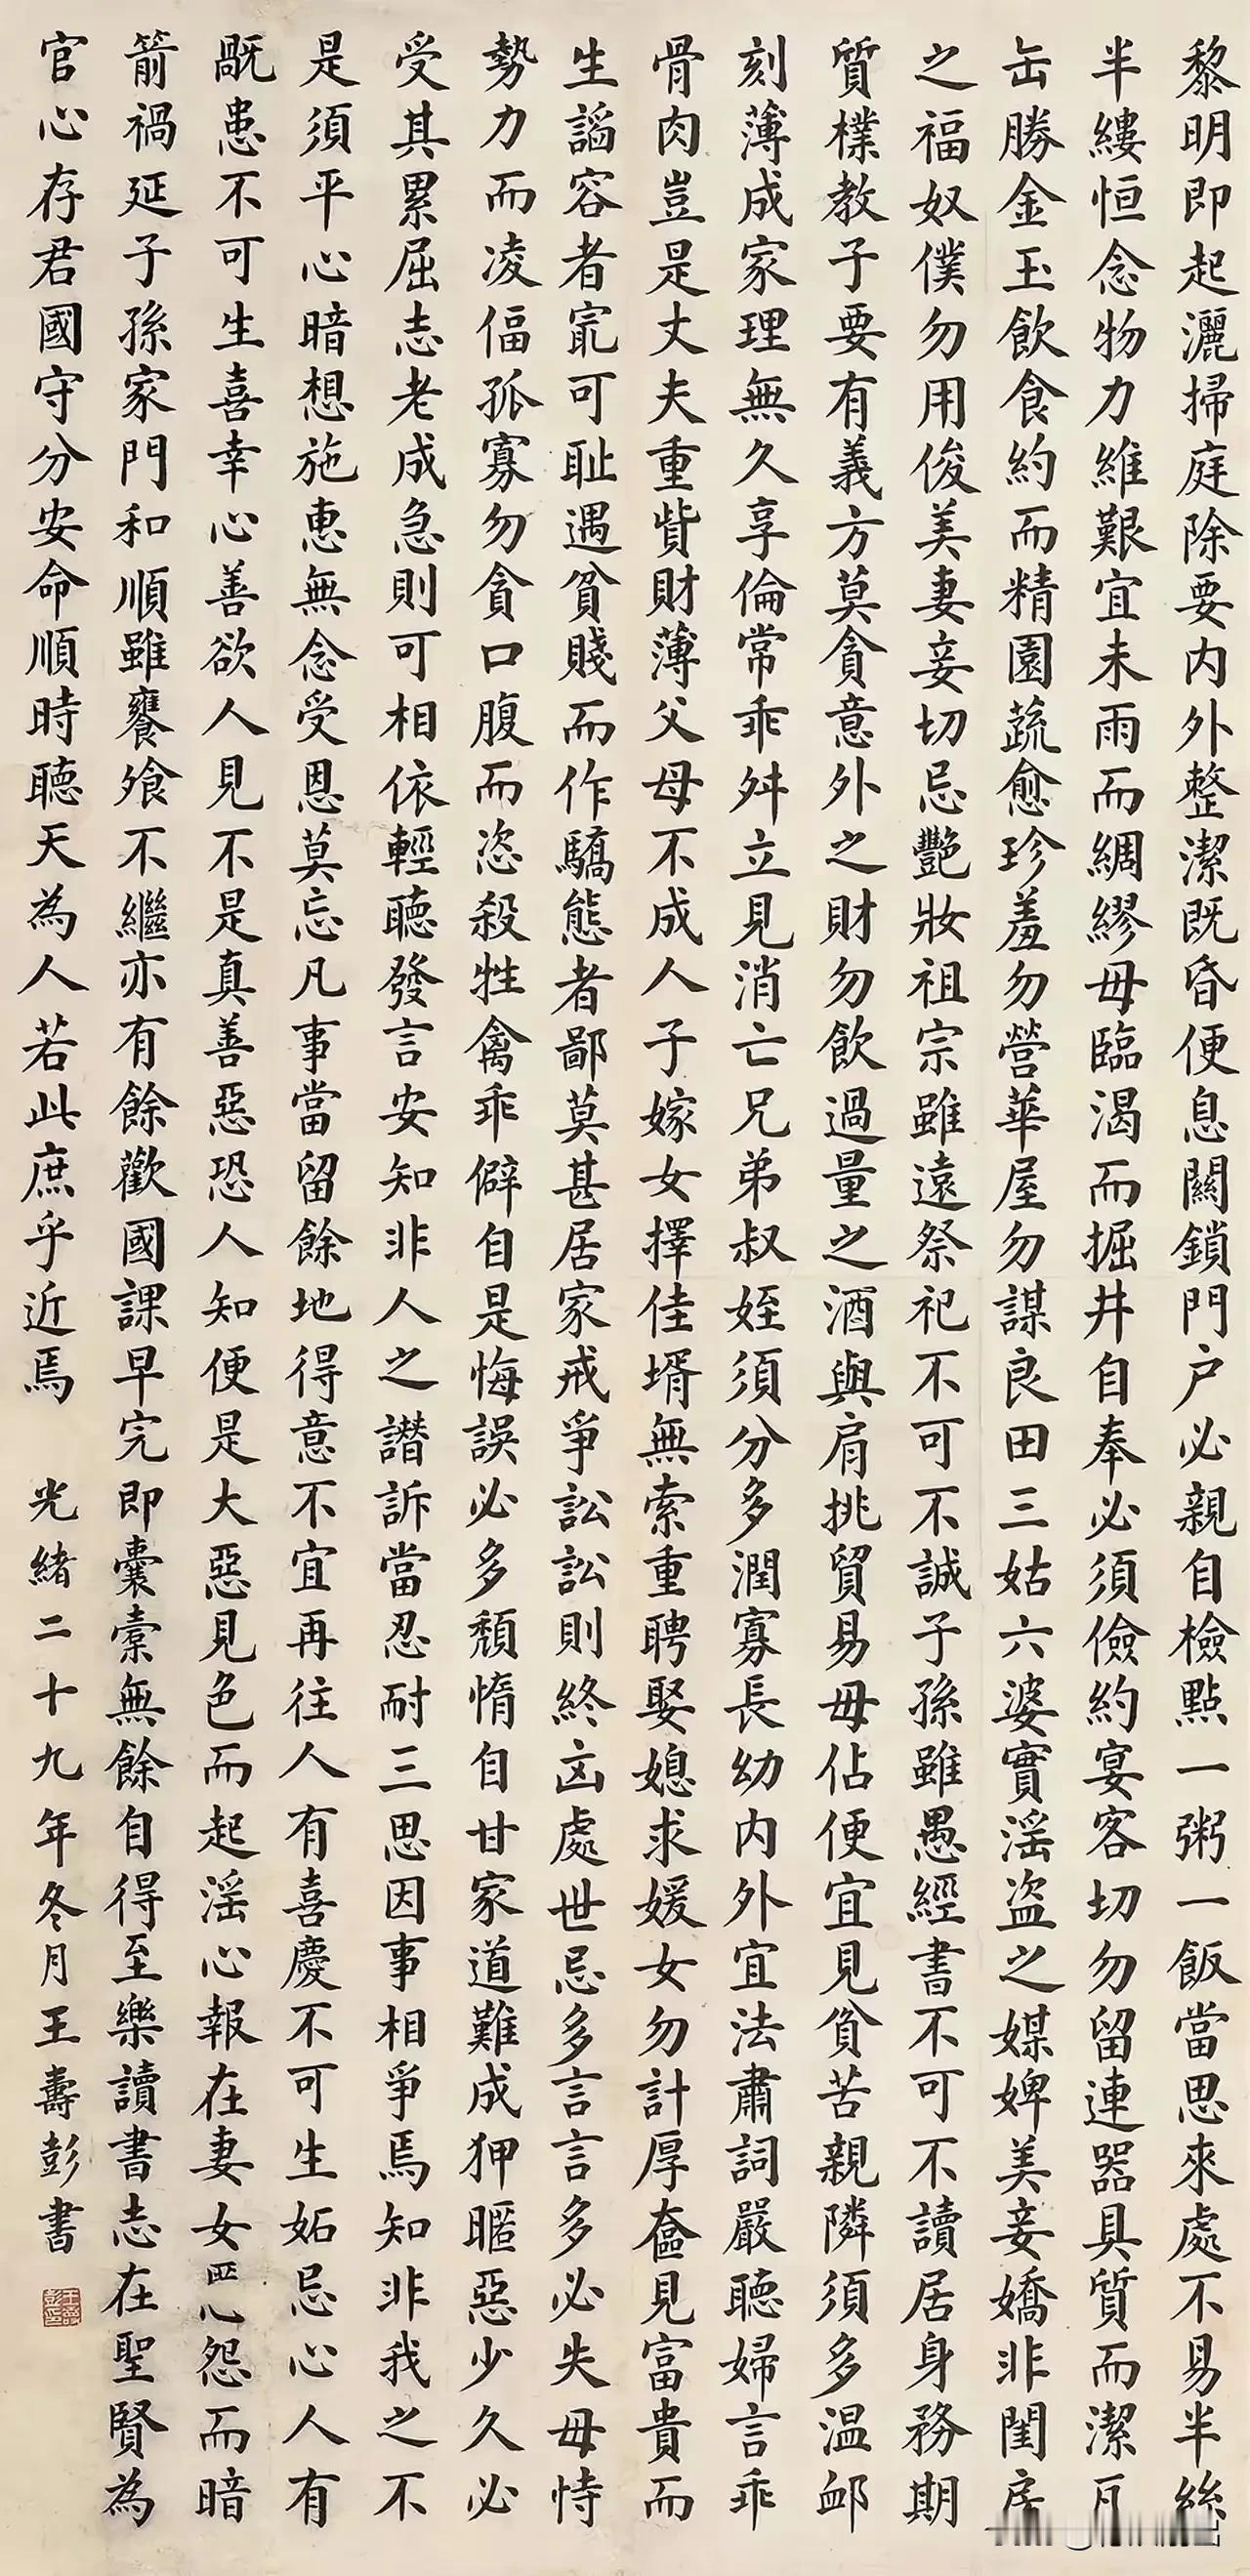 黎明即起灑掃庭除要内外整潔既昏便息關鎖門户必親自檢點一粥一飯當思來處不易半絲
半縷恒念物力維艱宜未雨而綢繆毋臨渴而掘井自奉必須儉約宴客切勿留連器具質而潔瓦
缶勝金玉飲食約而精園蔬愈珍羞勿營華屋勿謀良田三姑六婆實淫盗之媒婢美妾嬌非閨房
之福奴僕勿用俊美妻妾切忌艷妝祖宗雖遠祭祀不可不誠子孫雖愚經書不可不讀居身務期
質樸教子要有義方莫貪意外之財勿飲過量之酒與肩挑貿易毋佔便宜見貧苦親隣須多温卹
刻薄成家理無久享倫常乖舛立見消亡兄弟叔姪須分多潤寡長幼内外宜法肅詞嚴聽婦言乖
骨肉豈是丈夫重貲財薄父母不成人子嫁女擇佳壻無索重聘娶媳求媛女勿計厚奩見富貴而
生謟容者寔可耻遇貧賤而作驕態者鄙莫甚居家戒爭訟訟則終凶處世忌多言言多必失毋恃
勢力而凌偪孤寡勿貪口腹而恣殺牲禽乖僻自是悔誤必多頹惰自甘家道難成狎暱惡少久必
受其累屈志老成急則可相依輕聽發言安知非人之譖訴當忍耐三思因事相爭焉知非我之不
是須平心暗想施惠無念受恩莫忘凡事當留餘地得意不宜再往人有喜慶不可生妬忌心人有
旤患不可生喜幸心善欲人見不是真善惡恐人知便是大惡見色而起淫心報在妻女匿怨而暗
箭禍延子孫家門和順雖饔飱不繼亦有餘歡國課早完即囊橐無餘自得至樂讀書志在聖賢為
官心存君國守分安命順時聽天為人若此庶乎近焉 光緒二十九年冬月王壽彭書